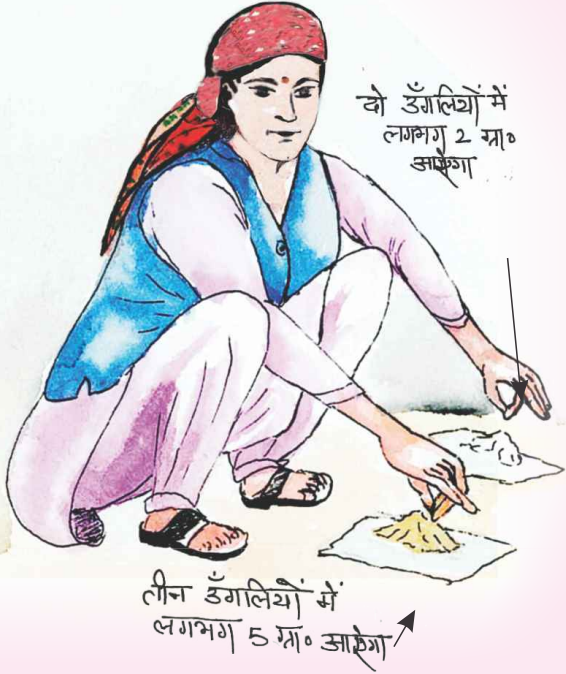 दो उँगलियों में
लगभग 2 ग्रा०
आऐगा
तीन उँगलियों में
लगभग 5 ग्रा० आऐगा